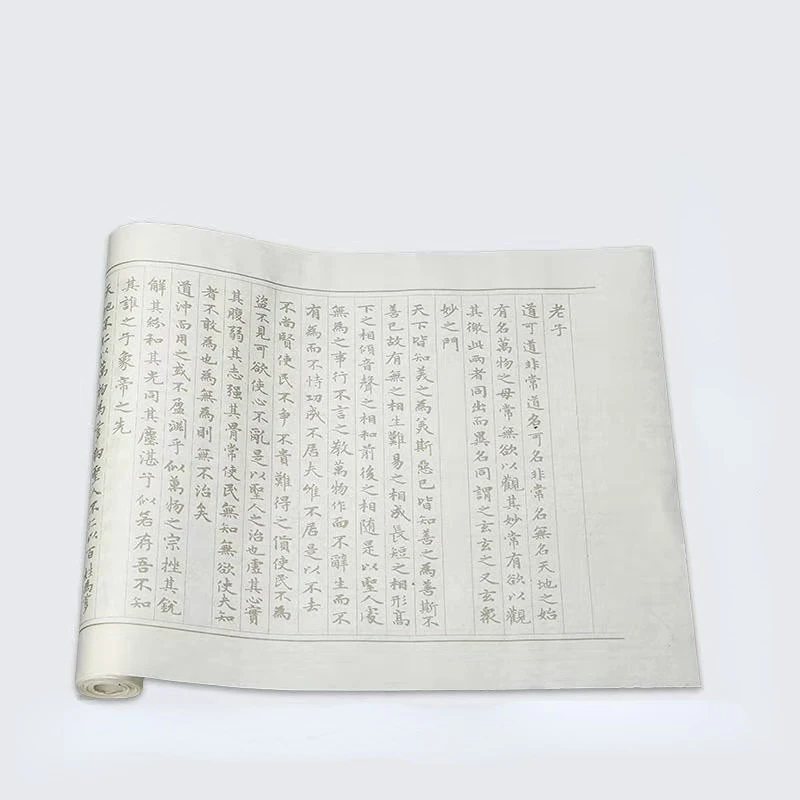 老子
道可道非常道名可名非常名無名天地之始
有名萬物之母常無欲以觀其妙常有欲以觀
其徼此兩者同出而異名同謂之玄玄之又玄衆
妙之門
天下皆知美之為美斯惡已皆知善之為善斯不
善已故有無之相生難易之相成長短之相形高
下之相傾音聲之相和前後之相随是以聖人處
無為之事行不言之教萬物作而不辭生而不
有為而不恃功成不居夫惟不居是以不去
不尚賢使民不爭不貴難得之貨使民不為
盜不見可欲使心不亂是以聖人之治也虛其心實
其腹弱其志强其骨常使民無知無欲使夫知
者不敢為也為無為則無不治矣
道沖而用之或不盈淵乎似萬物之宗挫其銳
解其紛和其光同其塵湛兮似若存吾不知
其誰之子象帝之先
天地不仁以萬物為芻狗聖人不仁以百姓為芻